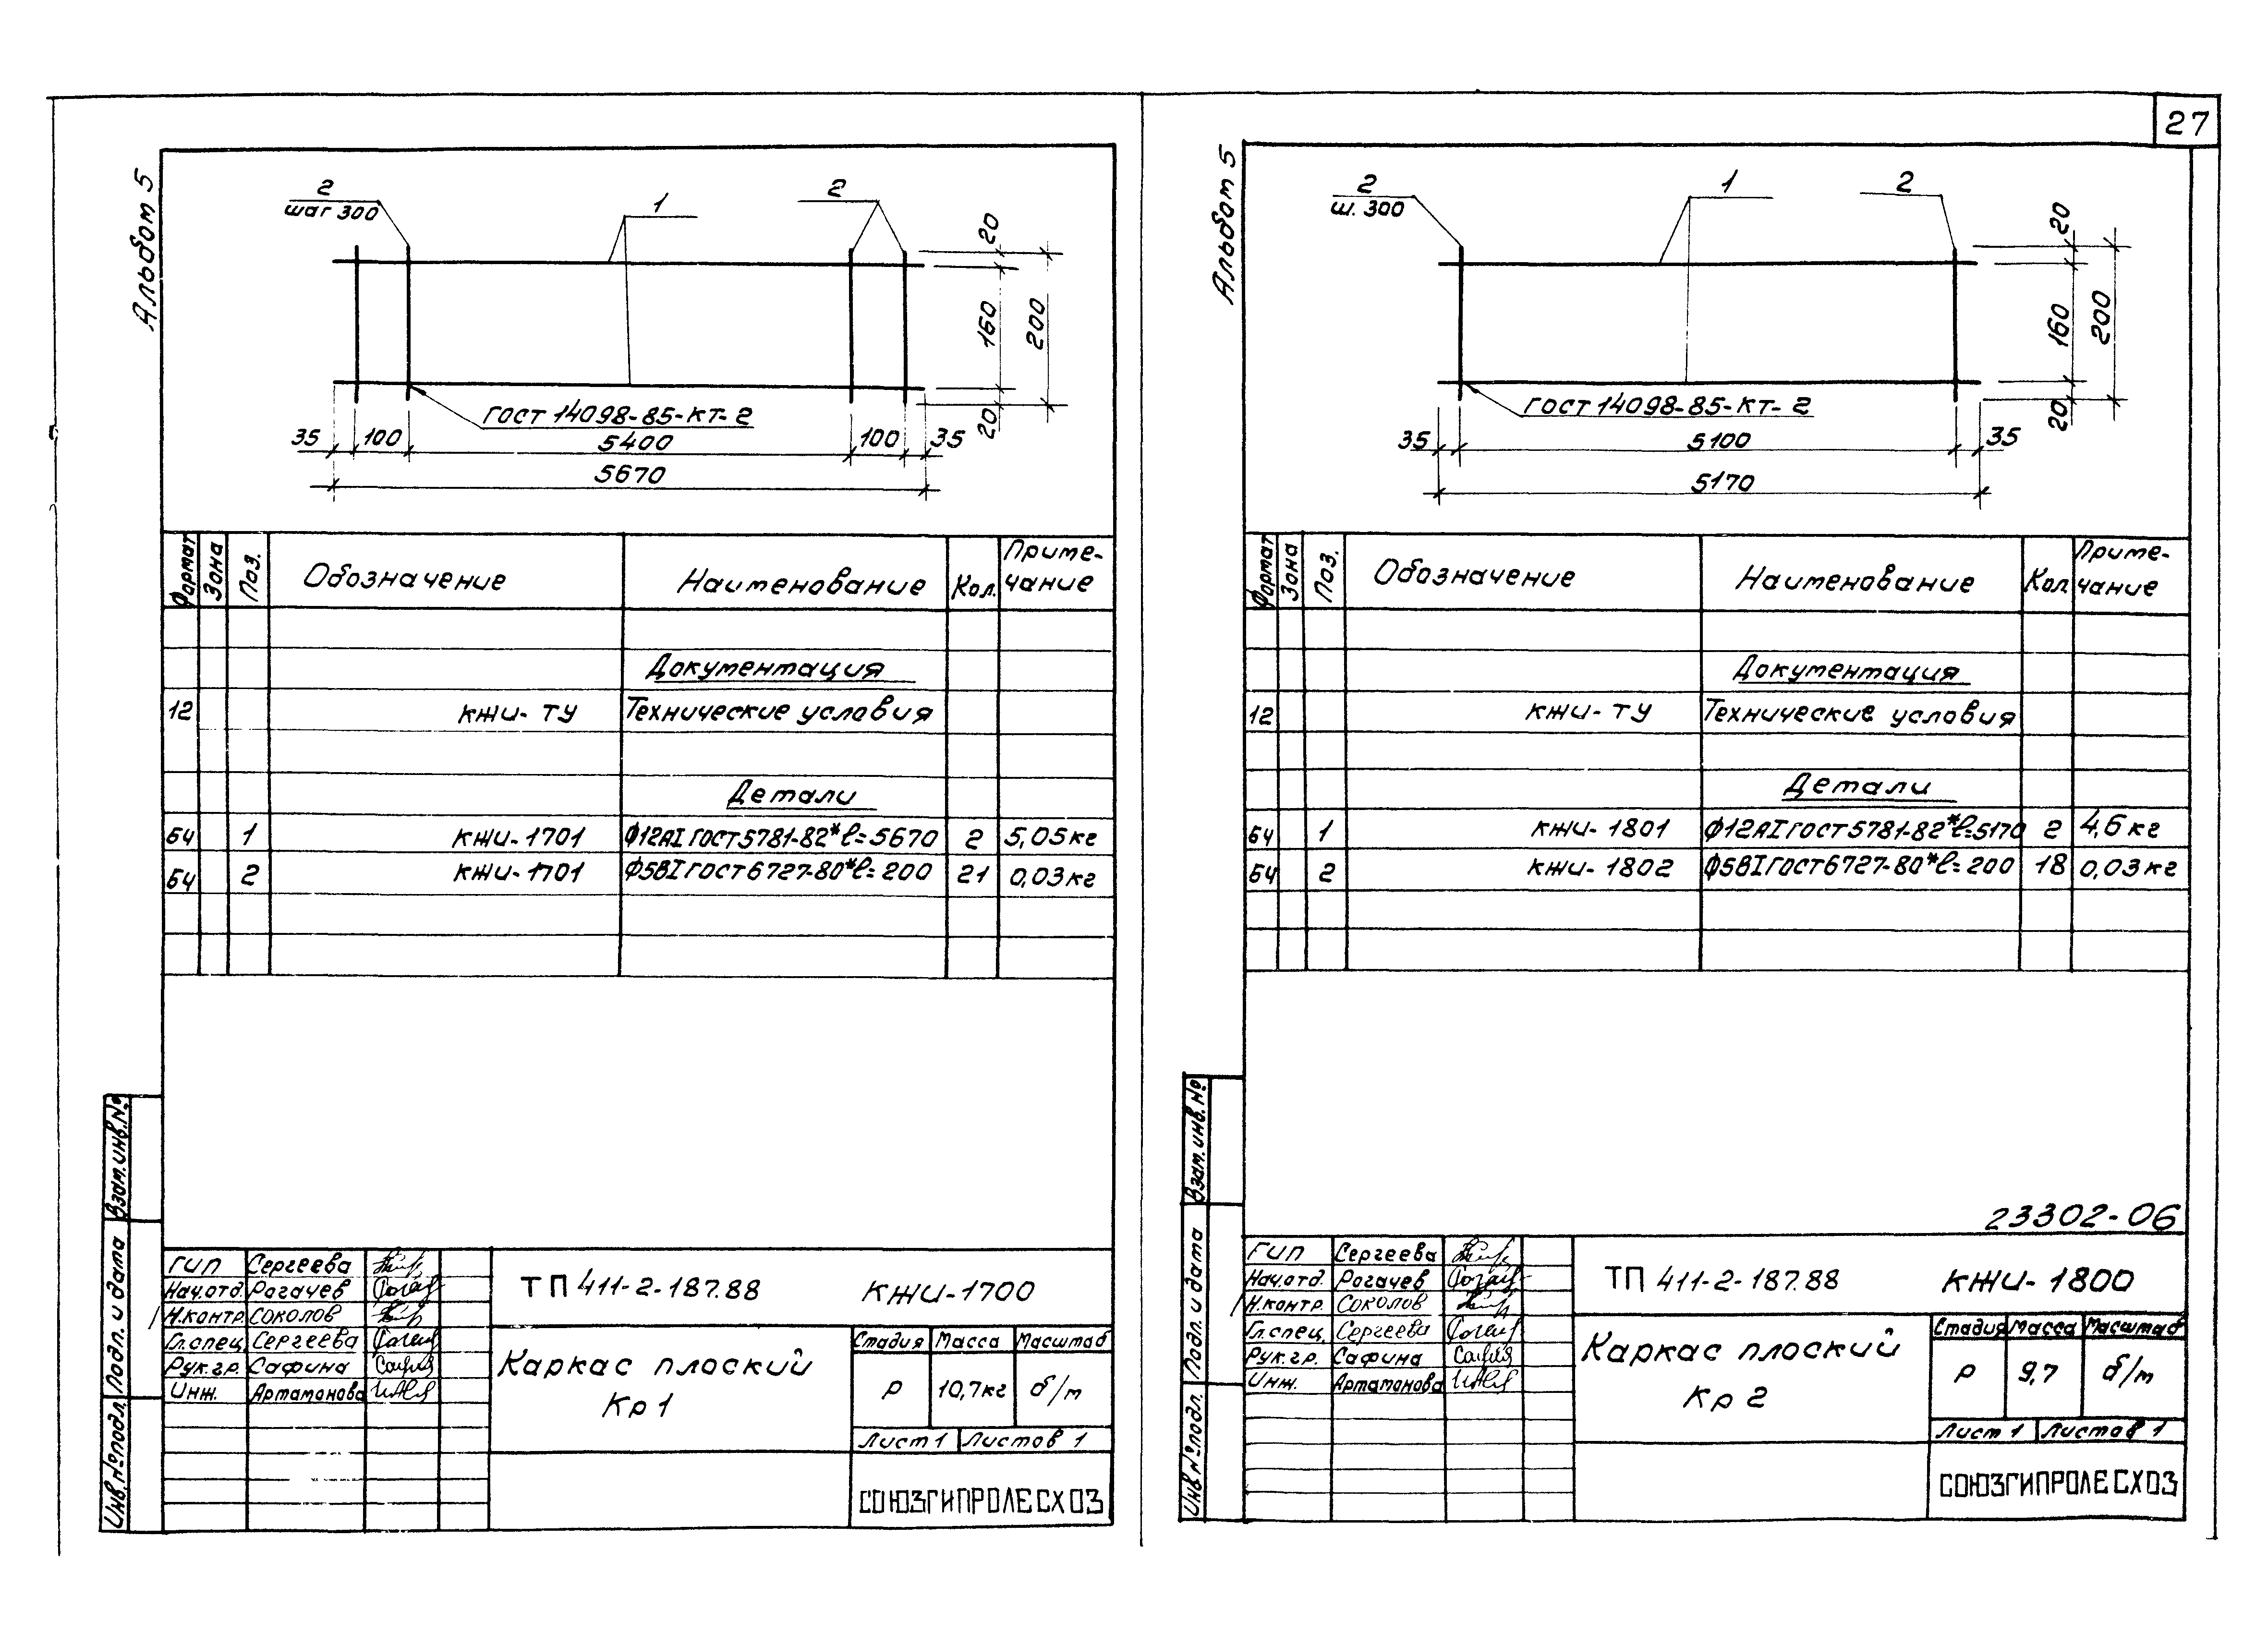 27
Альбом 5
2
шаг 300
1
2
20
160
200
20
ГОСТ 14098-85-КТ-2
35 100 5400 100 35
5670
Формат Зона Поз. Обозначение Наименование Кол. Приме-
чание
Документация
12 КЖИ-ТУ Технические условия
Детали
БЧ 1 КЖИ-1701 Ф12АI ГОСТ 5781-82* ℓ=5670 2 5,05кг
БЧ 2 КЖИ-1701 Ф5ВI ГОСТ 6727-80* ℓ=200 21 0,03кг
Взам.инв.№
Подл. и дата
Инв.№подл.
ГИП Сергеева
Нач.отд. Рогачев
Н.контр. Соколов
Гл.спец. Сергеева
Рук.гр. Сафина
Инж. Артамонова
ТП 411-2-187.88 КЖИ-1700
Каркас плоский
Кр 1
Стадия Масса Масштаб
Р 10,7кг б/м
Лист 1 Листов 1
СОЮЗГИПРОЛЕСХОЗ
Альбом 5
2
ш. 300
1
2
20
160
200
20
ГОСТ 14098-85-КТ-2
35 5100 35
5170
Формат Зона Поз. Обозначение Наименование Кол. Приме-
чание
Документация
12 КЖИ-ТУ Технические условия
Детали
БЧ 1 КЖИ-1801 Ф12АI ГОСТ 5781-82* ℓ=5170 2 4,6кг
БЧ 2 КЖИ-1802 Ф5ВI ГОСТ 6727-80* ℓ=200 18 0,03кг
23302-06
Взам.инв.№
Подл. и дата
Инв.№подл.
ГИП Сергеева
Нач.отд. Рогачев
Н.контр. Соколов
Гл.спец. Сергеева
Рук.гр. Сафина
Инж. Артамонова
ТП 411-2-187.88 КЖИ-1800
Каркас плоский
Кр 2
Стадия Масса Масштаб
Р 9,7 б/м
Лист 1 Листов 1
СОЮЗГИПРОЛЕСХОЗ